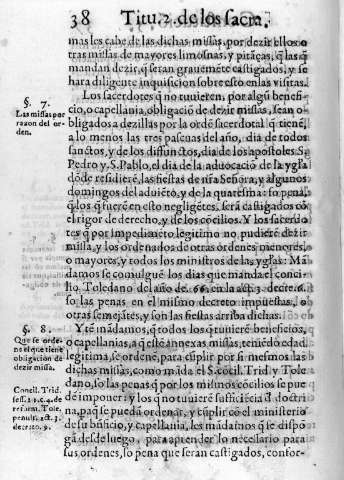 38 Titu. 2. de los sacra.
mas les cabe de las dichas missas, por dezir ellos o
tras missas de mayores limosnas, y pitãças, q̃ las q̃
mandan dezir, q̃ seran grauemẽte castigados, y se
hara diligente inquisicion sobre esto en las visitas.
§. 7.
Las missas por
razon del or-
den.
Los sacerdotes q̃ no tuuierẽ, por algũ benefi-
cio, o capellania, obligaciõ de dezir missas, seãn o-
bligados a dezillas por la ordẽ sacerdotal q̃ tienẽ,
a lo menos las tres pascuas del año, dia de todos
sanctos, y de los diffunctos, dia de los apostoles. S.
Pedro y. S. Pablo, el dia de la aduocaciõ de la ygl̃a
dõde residierẽ, las fiestas de nr̃a Señora, y algunos
domingos del aduiẽto, y de la quaresma: so pena,
q̃ los q̃ fuerẽ en esto negligẽtes, serã castigados cõ
el rigor de derecho, y de los cõcilios. Y los sacerdo
tes q̃ por impedimẽto legitimo no pudierẽ dezir
missa, y los ordenados de otras ordenes menores,
o mayores, y todos los ministros de las ygl̃as: Mã
damos se comulguẽ los dias que manda el conci-
lio Toledano del año de. 66. en la act. 3. decre. 6.
so las penas en el mismo decreto impuestas, o
otras semejãtes, y son las fiestas arriba dichas.
§. 8.
Que se orde-
ne el que tiene
obligacion de
dezir missa.
Concil. Trid.
sess. 23. c. 4. de
reform. Tole.
prouin. act. 3.
decreto. 9.
Y tẽ mãdamos, q̃ todos los q̃ tuuierẽ beneficios,
o capellanias, a q̃ estẽ annexas missas, teniẽdo edad
legitima, se ordenẽ, para cũplir por si mesmos las
dichas missas, como mãda el S. cõcil. Trid. y Tole
dano, so las penas q̃ por los mismos cõcilios se pue
dẽ imponer: y los que no tuuierẽ sufficiẽcia d̃ doctri
na, paq̃ se pueda ordenar, y cũplir cõ el ministerio
de su bñficio, y capellania, les mãdamos q̃ se dispõ
gã desde luego, para aprender lo necessario para
sus ordenes, so pena que seran castigados, confor-